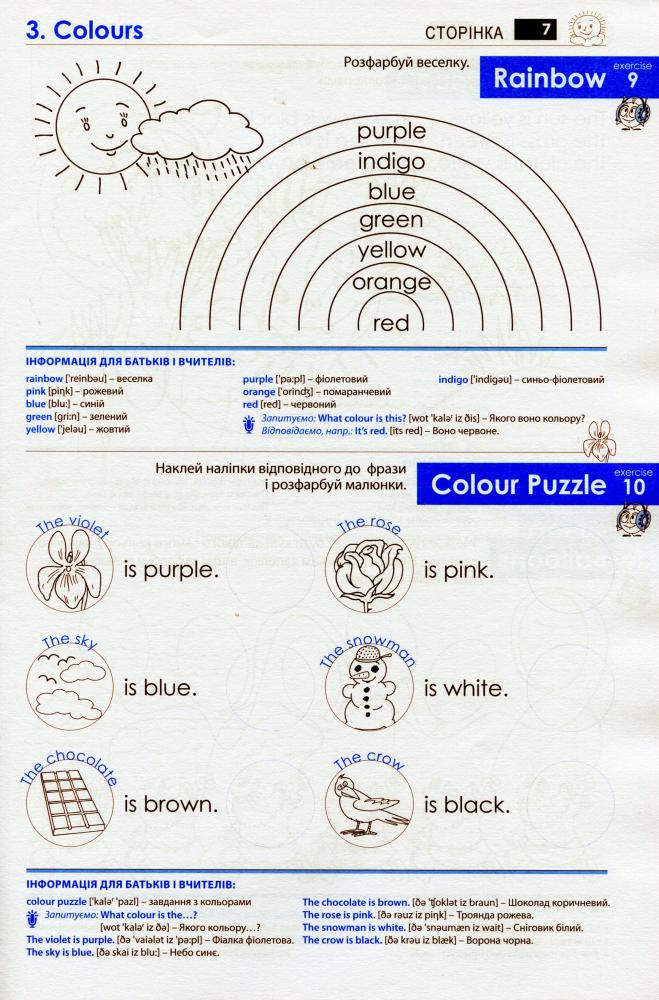 3. Colours
СТОРІНКА 7
Розфарбуй веселку.
Rainbow
exercise
9
purple
indigo
blue
green
yellow
orange
red
ІНФОРМАЦІЯ ДЛЯ БАТЬКІВ І ВЧИТЕЛІВ:
rainbow ['reinbəu] – веселка
pink [piŋk] – рожевий
blue [blu:] – синій
green [gri:n] – зелений
yellow ['jeləu] – жовтий
purple ['pə:pl] – фіолетовий
orange ['orindʒ] – помаранчевий
red [red] – червоний
indigo ['indigəu] – синьо-фіолетовий
Запитуємо: What colour is this? [wot 'kalə' iz ðis] – Якого воно кольору?
Відповідаємо, напр.: It's red. [its red] – Воно червоне.
Наклей наліпки відповідного до фрази
і розфарбуй малюнки.
Colour Puzzle
exercise
10
The violet
is purple.
The rose
is pink.
The sky
is blue.
The snowman
is white.
The chocolate
is brown.
The crow
is black.
ІНФОРМАЦІЯ ДЛЯ БАТЬКІВ І ВЧИТЕЛІВ:
colour puzzle ['kalə' 'pazl] – завдання з кольорами
Запитуємо: What colour is the...?
[wot 'kalə' iz ðə] – Якого кольору...?
The violet is purple. [ðə 'vaiələt iz 'pə:pl] – Фіалка фіолетова.
The sky is blue. [ðə skai iz blu:] – Небо синє.
The chocolate is brown. [ðə 'ʧoklət iz braun] – Шоколад коричневий.
The rose is pink. [ðə rəuz iz piŋk] – Троянда рожева.
The snowman is white. [ðə 'snəumæn iz wait] – Сніговик білий.
The crow is black. [ðə krəu iz blæk] – Ворона чорна.